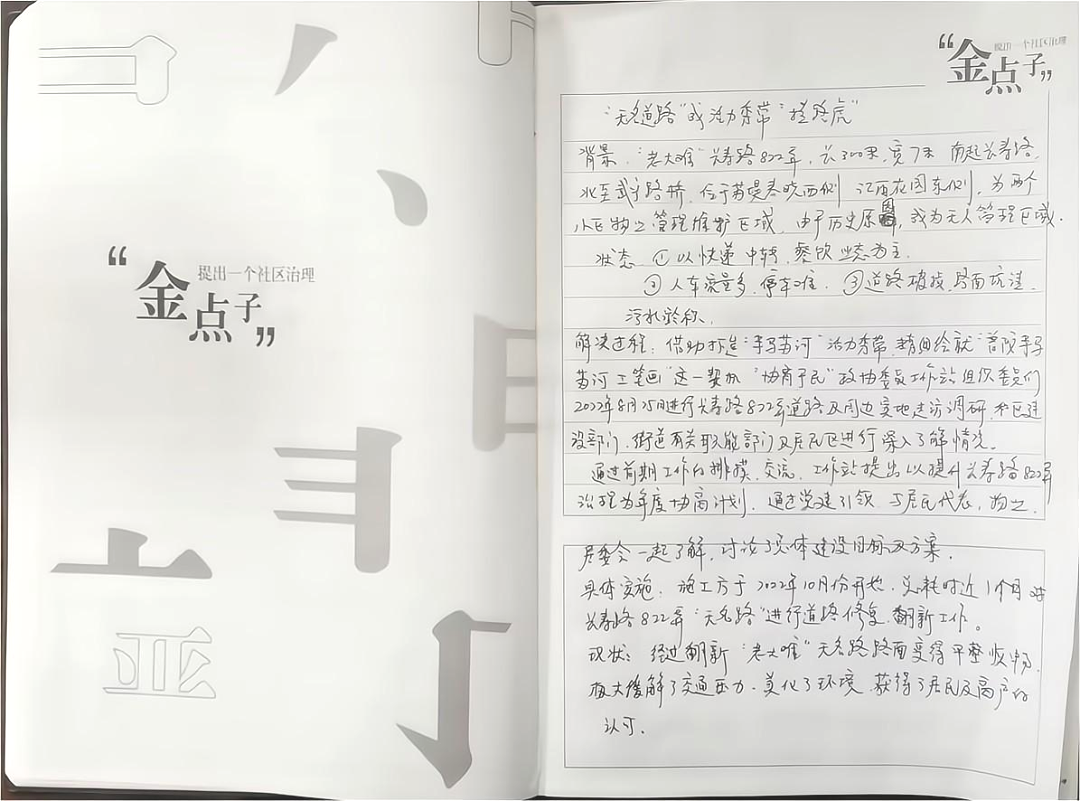 “
提出一个社区治理
金点子
”
“
提出一个社区治理
金点子
”
“无名道路”成活力秀带“拦路虎”
背景：“老大难”长寿路822弄，长300米，宽7米 南起长寿路，
北至武宁路桥，位于苏堤春晓西侧 江南花园东侧，为两个
小区物业管理维护区域，由于历史原因，成为无人管理区域.
状态 ①以快递中转、餐饮业态为主.
②人车流量多，停车难. ③道路破损，路面坑洼.
污水淤积、
解决过程：借助打造“半马苏河”活力秀带，精细绘就“普陀半马
苏河工笔画”这一契机“协商于民”政协委员工作站组织委员们
2022年8月25日进行长寿路822弄道路及周边实地走访调研，和区建
设部门、街道有关职能部门及居民区进行深入了解情况。
通过前期工作的排摸、交流，工作站提出以提升长寿路822弄
治理为年度协商计划，通过党建引领 与居民代表，物业、
居委会一起了解，讨论了具体建设目标及方案.
具体实施：施工方于2022年10月份开始，总耗时近1个月 对
长寿路822弄“无名路”进行道路修复、翻新工作。
现状：经过翻新“老大难”无名路路面变得平整顺畅，
极大缓解了交通压力，美化了环境，获得了居民及商户的
认可.